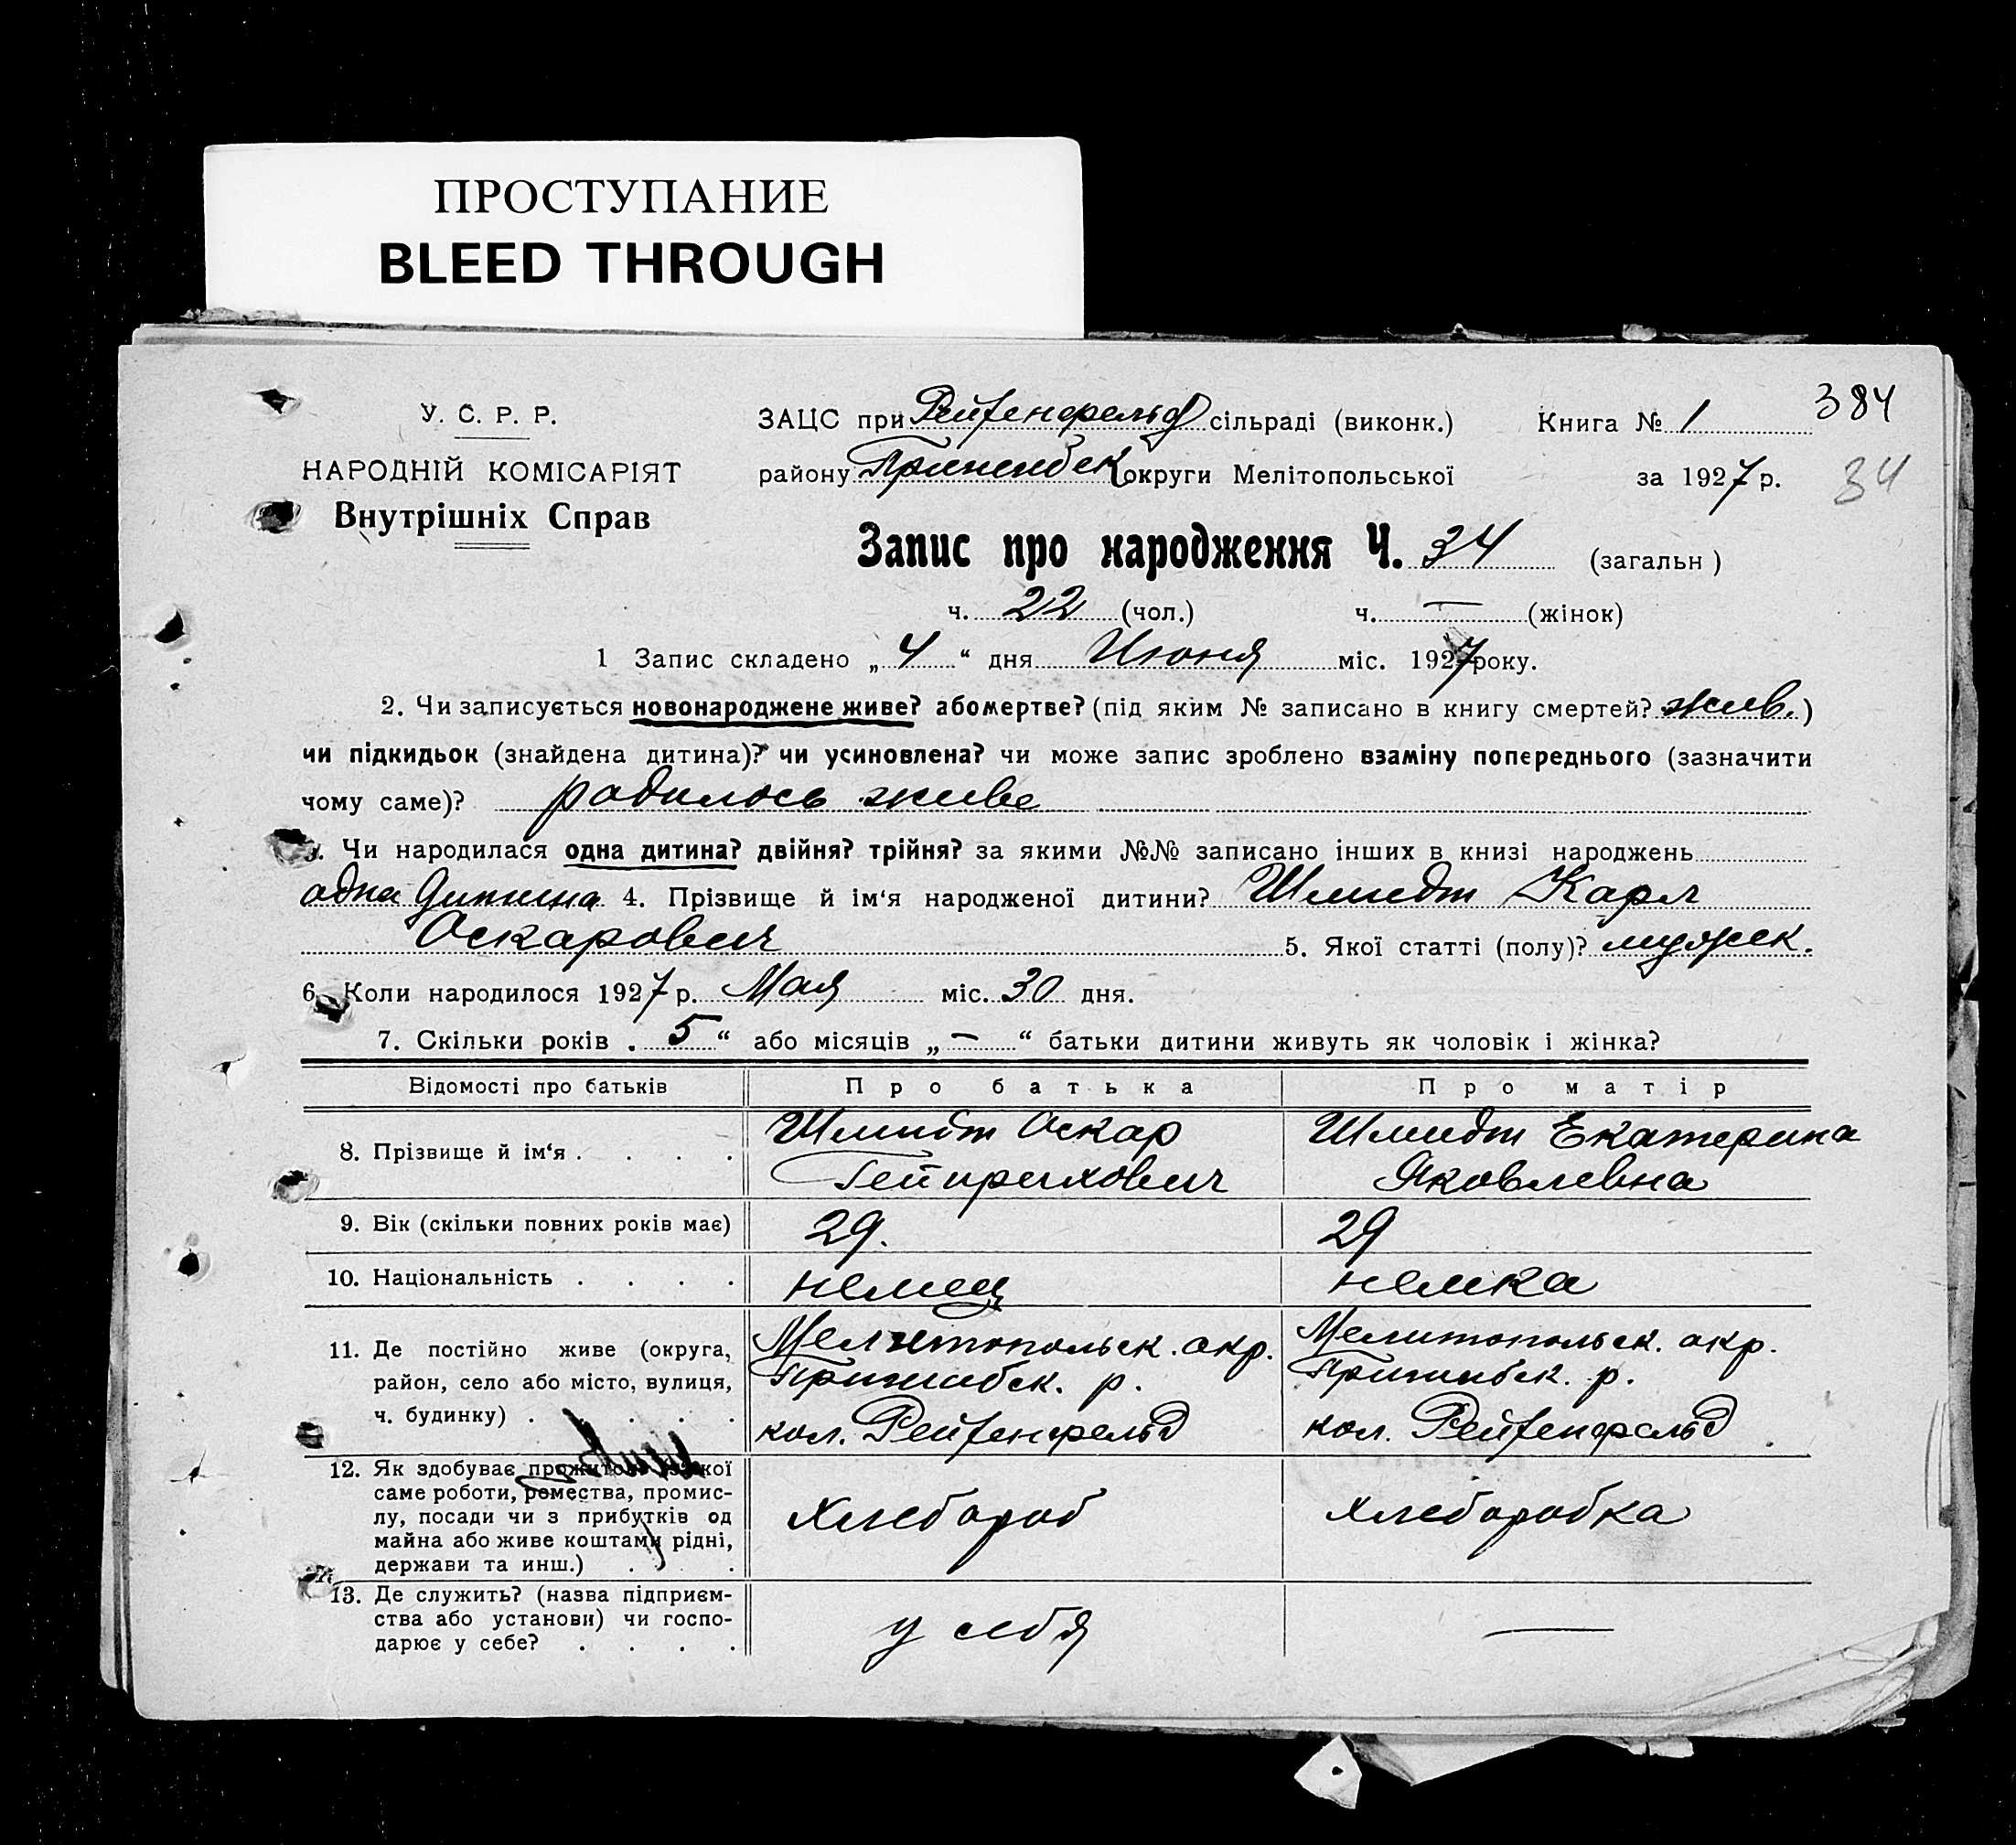 ПРОСТУПАНИЕ
BLEED THROUGH
У. С. Р. Р.
НАРОДНІЙ КОМІСАРІЯТ
Внутрішніх Справ
ЗАЦС при Рейхенфельд сільраді (виконк.)
Книга № 1
384
району Пришибск округи Мелітопольської
за 1927 р.
34
Запис про народження Ч. 34 (загальн)
ч. 22 (чол.) ч. — (жінок)
1 Запис складено „4“ дня Июня міс. 1927 року.
2. Чи записується новонароджене живе? абомертве? (під яким № записано в книгу смертей? жив.)
чи підкидьок (знайдена дитина)? чи усиновлена? чи може запис зроблено взаміну попереднього (зазначити
чому саме)? родилось живе
3. Чи народилася одна дитина? двійня? трійня? за якими №№ записано інших в книзі народжень
одна дитина 4. Прізвище й ім‘я народженої дитини? Шмидт Карл
Оскарович 5. Якої статті (полу)? мужск.
6. Коли народилося 1927 р. Мая міс. 30 дня.
7. Скільки років „5“ або місяців „—“ батьки дитини живуть як чоловік і жінка?
Відомості про батьків Про батька Про матір
8. Прізвище й ім‘я . . . . Шмидт Оскар Гейнрихович Шмидт Екатерина Яковлевна
9. Вік (скільки повних років має) 29. 29
10. Національність . . . . немец немка
11. Де постійно живе (округа,
район, село або місто, вулиця,
ч. будинку) . . . . .
Мелитопольск. окр.
Пришибск. р.
кол. Рейхенфельд
Мелитопольск. окр.
Пришибск. р.
кол. Рейхенфельд
12. Як здобуває прожиток (з якої
саме роботи, ремества, промис-
лу, посади чи з прибутків од
майна або живе коштами рідні,
держави та инш.) . . .
Хлебороб
хлеборобка
13. Де служить? (назва підприєм-
ства або установи) чи госпо-
дарює у себе? . . . .
у себя
—